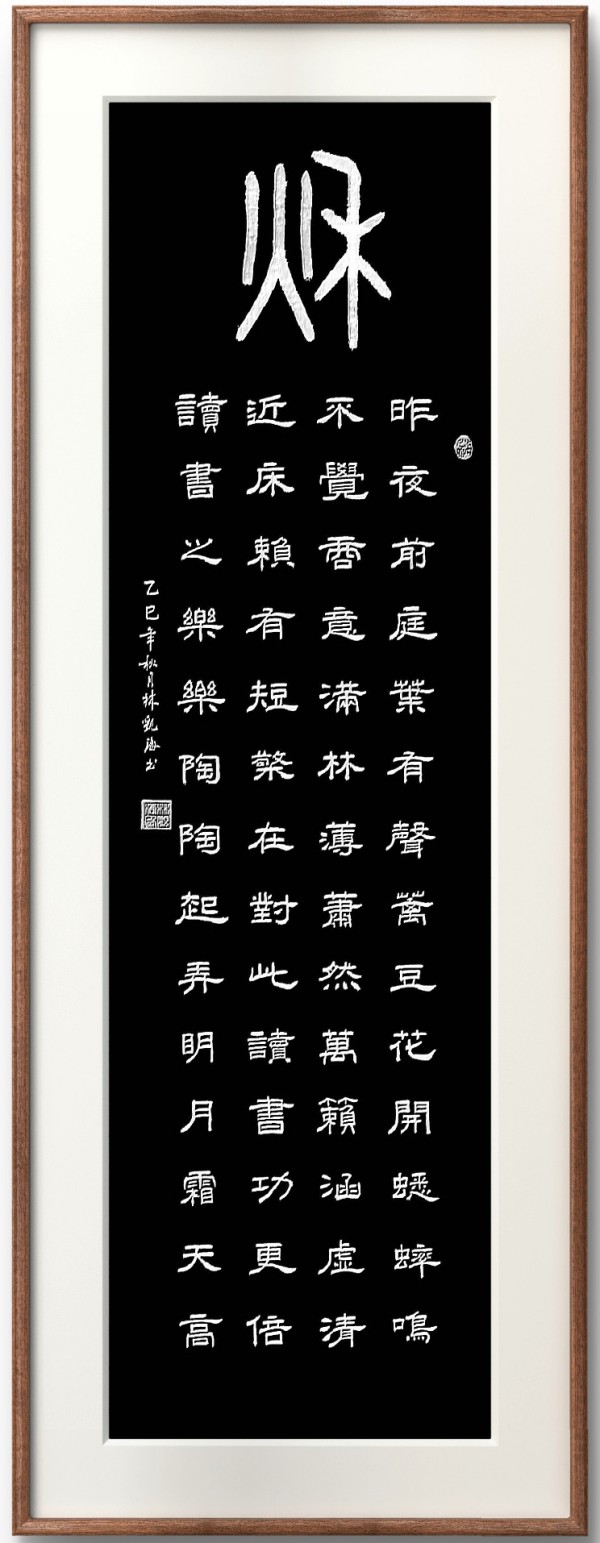 秋
昨夜前庭葉有聲萬豆花開蟋蟀鳴
不覺商意滿林薄蕭然萬籟涵虛清
近床賴有短檠在對此讀書功更倍
讀書之樂樂陶陶起弄明月霜天高
乙巳年秋月林海书